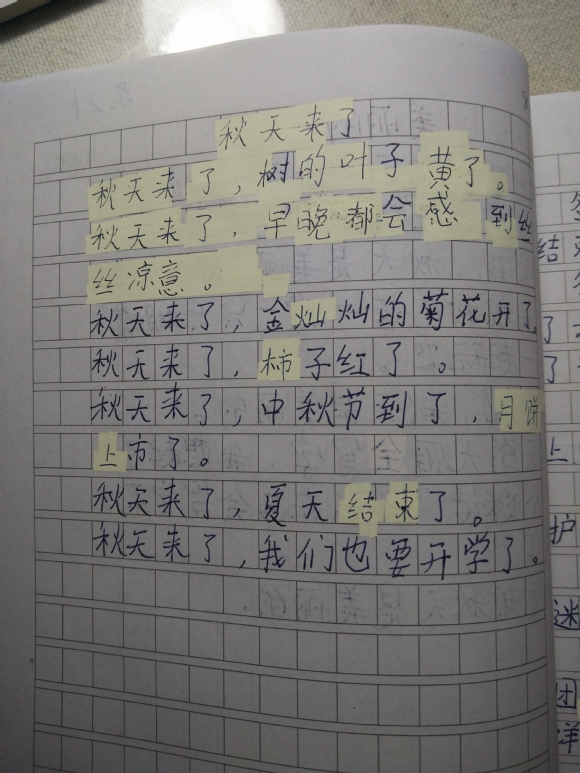 8.21
秋天来了
秋天来了,树的叶子黄了。
秋天来了,早晚都会感到丝
丝凉意。
秋天来了,金灿灿的菊花开了。
秋天来了,柿子红了。
秋天来了,中秋节到了,月饼
上市了。
秋天来了,夏天结束了。
秋天来了,我们也要开学了。
结
了
了
上
护
迷
团
洋